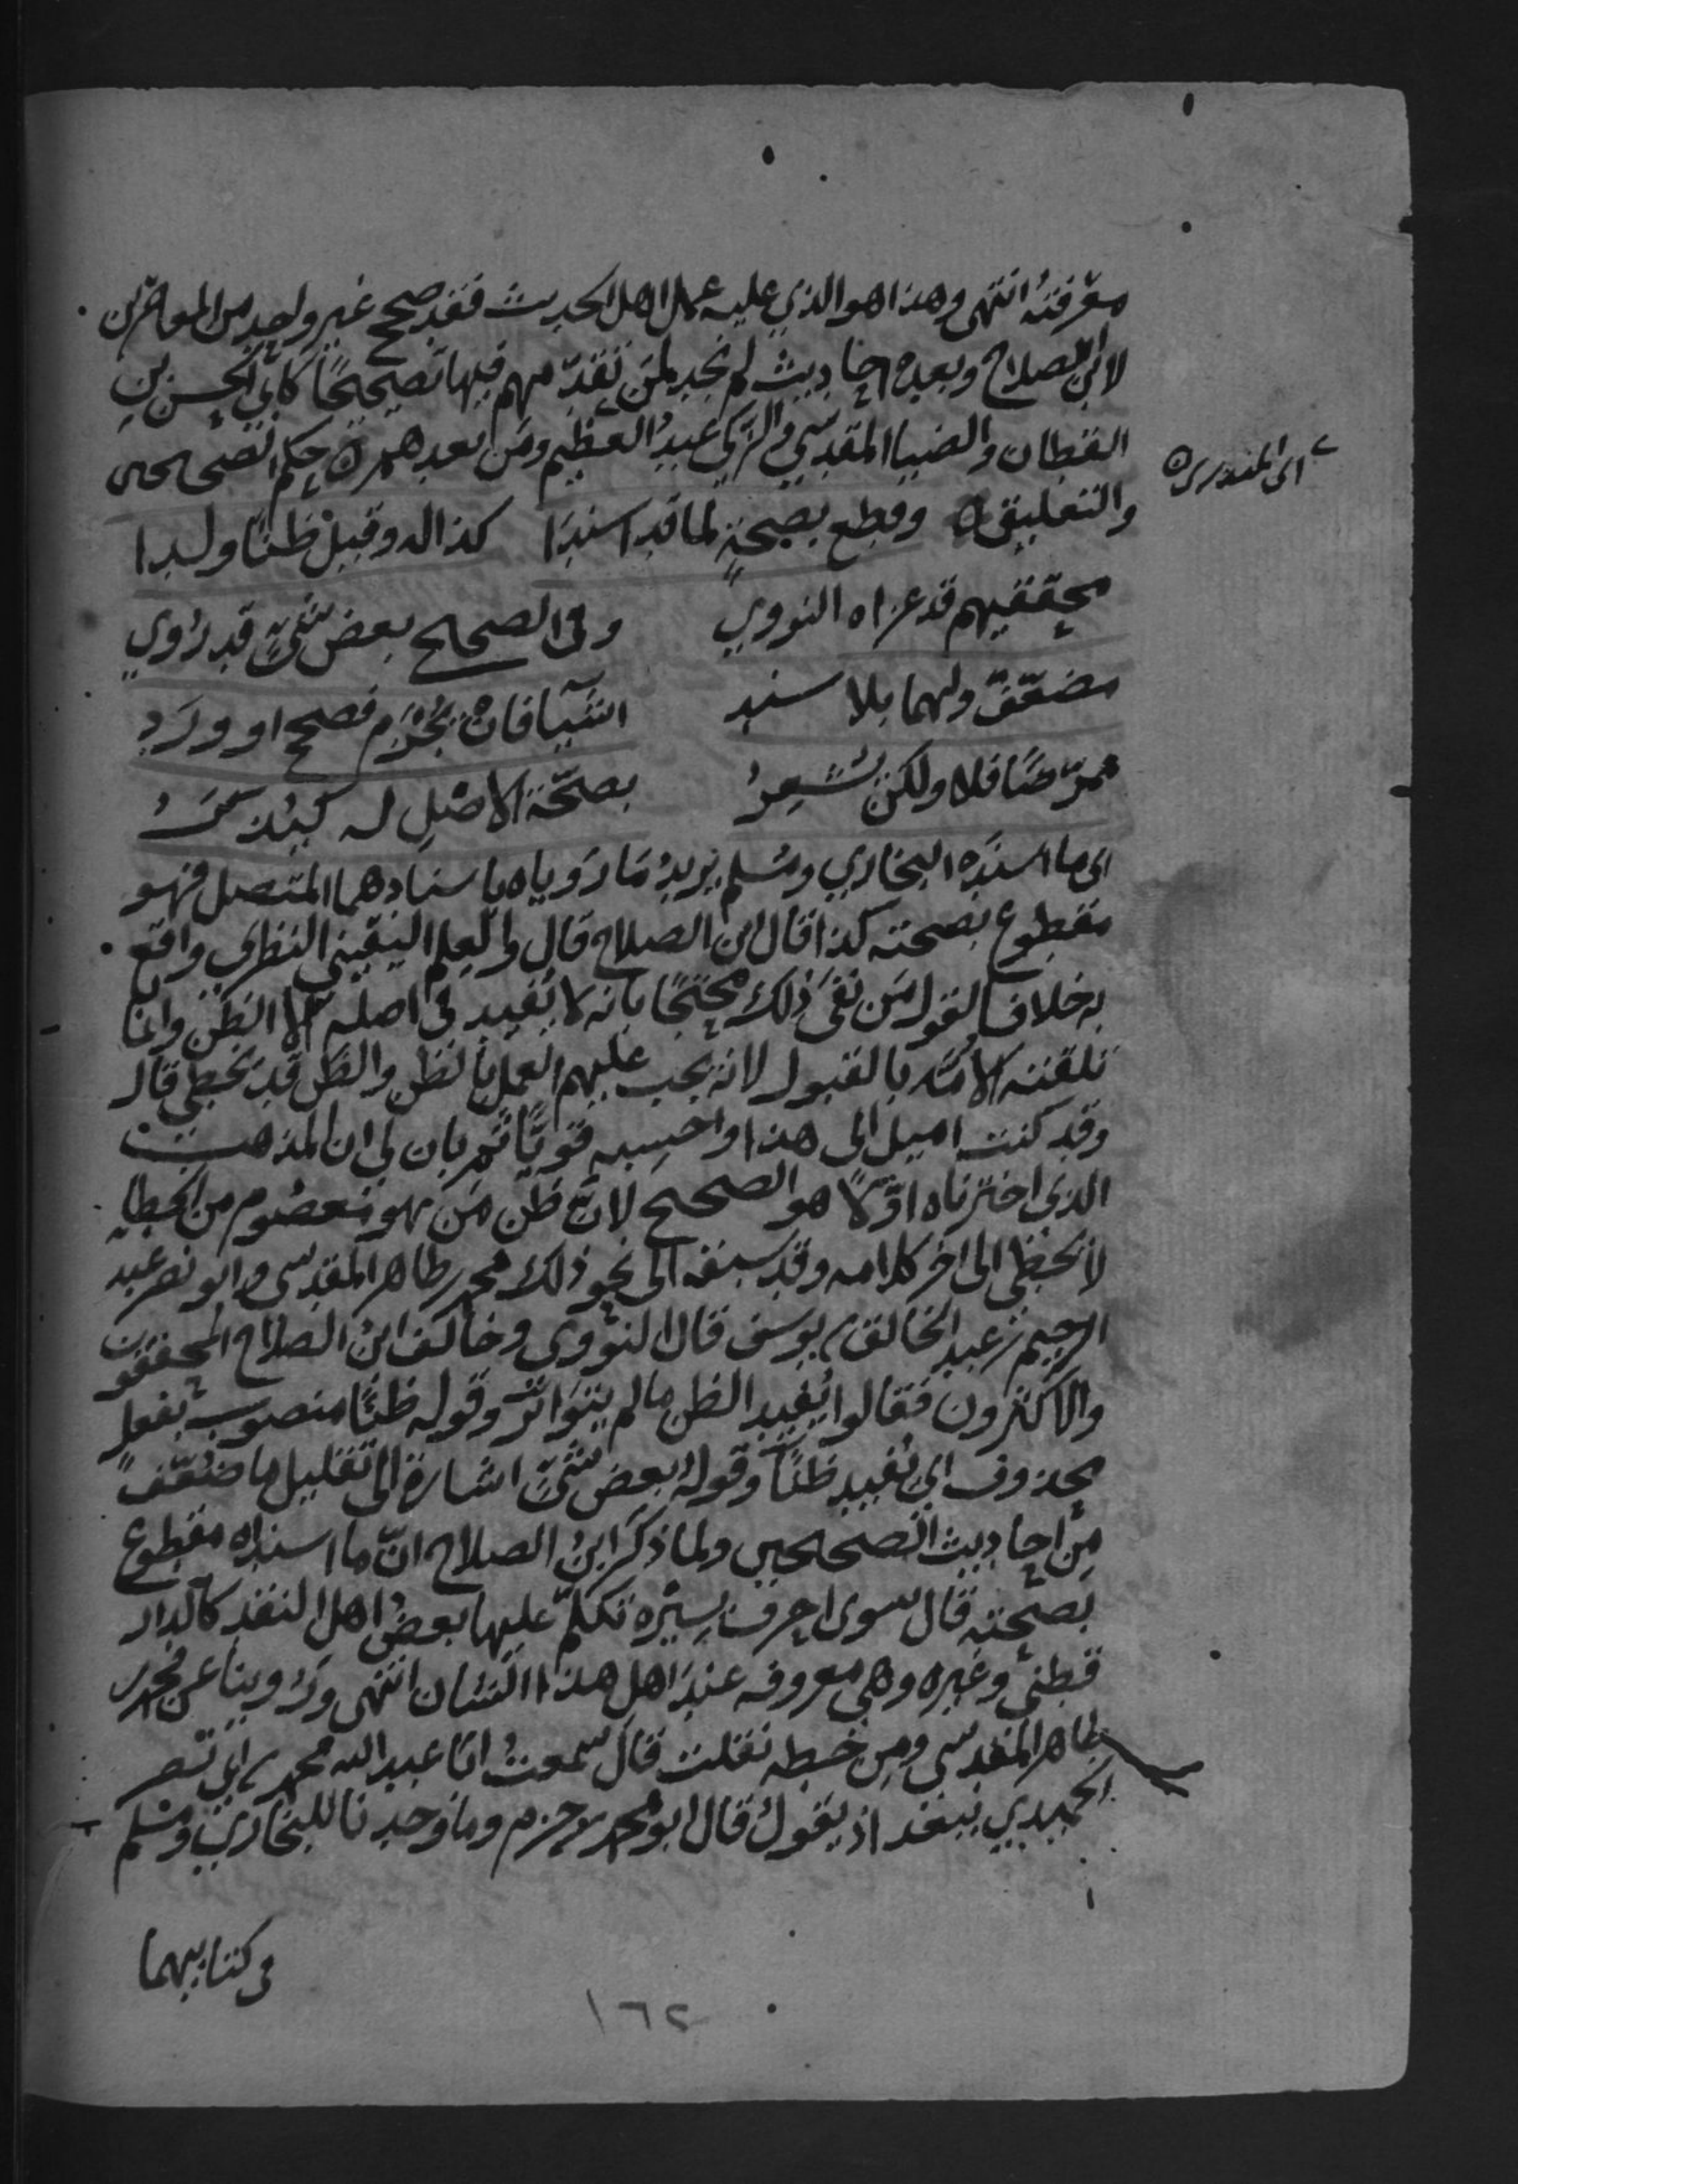 معرفته انتهى وهذا هو الذي عليه عمل اهل الحديث فقد صحح غير واحد من المعاصرين
لابن الصلاح وبعده احاديث لم نجد لمن تقدمهم فيها تصحيحًا كابي الحسن بن
القطان والضيا المقدسي والزكي عبد العظيم ومن بعدهم ه حكم الصحيحين
اى المنذرى ه
والتعليق ه وقطع بصحةٍ لما قد اسندا كذا له وقيل ظنًا ولدا
محققيهم قد عزاه النووي وفي الصحيح بعض شئٍ قد رُوي
مضعّف ولهما بلا سند اشيا فان بجزم فصحح او ورد
ممرّضًا فلا ولكن يُشعرُ بصحّة الاصل له كيُذكرُ
اى ما اسنده البخاري ومسلم يريد ما روياه باسنادهما المتصل فهو
مقطوع بصحته كذا قال ابن الصلاح قال والعلم اليقيني النظري واقع
به خلافا لقول من نفى ذلك محتجًا بانه لا يفيد في اصله الا الظن وانما
تلقته الامة بالقبول لانه يجب عليهم العمل بالظن والظن قد يخطي قال
وقد كنت اميل الى هذا واحسبه قويًا ثم بان لي ان المذهب
الذي اخترناه اوّلا هو الصحيح لان ظن من هو معصوم من الخطا
لا يخطي الى اخر كلامه وقد سبقه الى نحو ذلك محمد بن طاهر المقدسي وابو نصر عبد
الرحيم بن عبد الخالق بن يوسف قال النووي وخالف ابن الصلاح المحققون
والاكثرون فقالوا يفيد الظن ما لم يتواتر وقوله ظنًا منصوب بفعل
محذوف اي يُفيد ظنًا وقوله بعض شئٍ اشارة الى تقليل ما ضعّف
من احاديث الصحيحين ولما ذكر ابن الصلاح انّ ما اسنداه مقطوع
بصحته قال سوى احرف يسيره تكلّم عليها بعض اهل النقد كالدار
قطني وغيره وهي معروفه عند اهل هذا الشان انتهى وروينا عن محمد بن
طاهر المقدسي ومن خطه نقلت قال سمعت ابا عبد الله محمد بن ابي نصر
الحميدي ببغداذ يقول قال ابو محمد بن حزم وما وجدنا للبخاري ومسلم
في كتابيهما
١٦٢